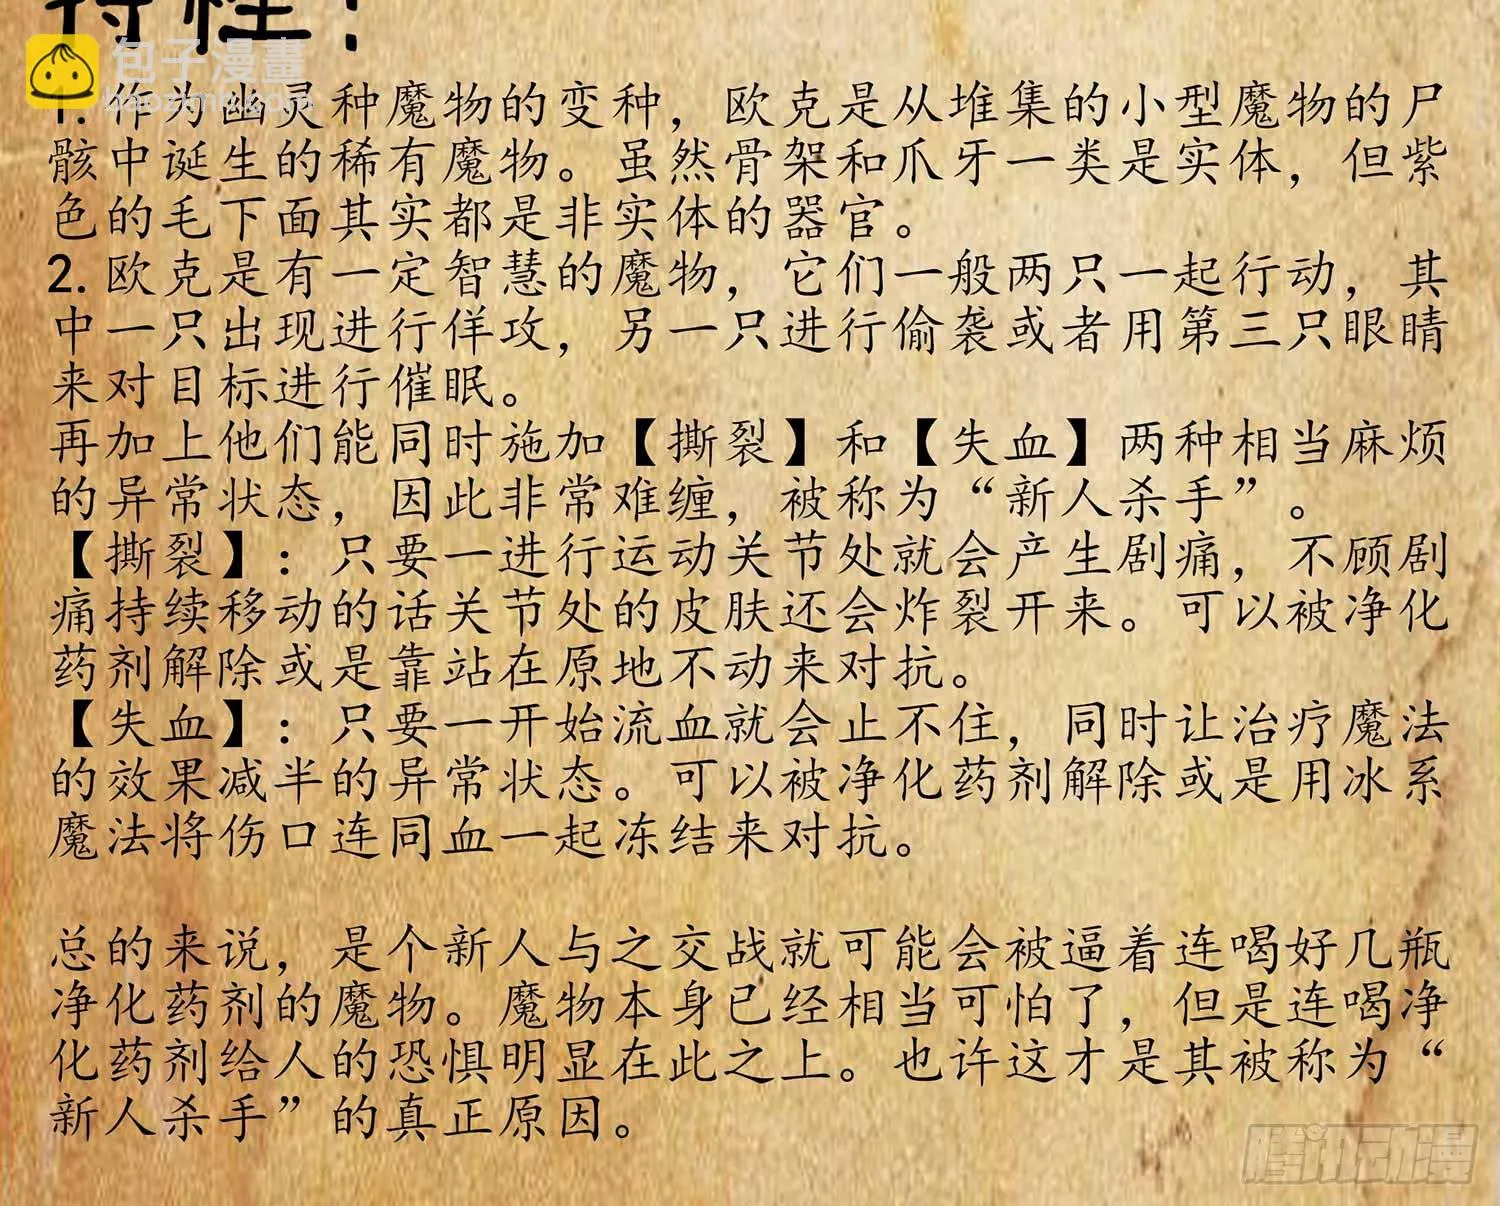 特性：
包子漫畫
baozimh.com
1. 作为幽灵种魔物的变种，欧克是从堆集的小型魔物的尸
骸中诞生的稀有魔物。虽然骨架和爪牙一类是实体，但紫
色的毛下面其实都是非实体的器官。
2. 欧克是有一定智慧的魔物，它们一般两只一起行动，其
中一只出现进行佯攻，另一只进行偷袭或者用第三只眼睛
来对目标进行催眠。
再加上他们能同时施加【撕裂】和【失血】两种相当麻烦
的异常状态，因此非常难缠，被称为“新人杀手”。
【撕裂】：只要一进行运动关节处就会产生剧痛，不顾剧
痛持续移动的话关节处的皮肤还会炸裂开来。可以被净化
药剂解除或是靠站在原地不动来对抗。
【失血】：只要一开始流血就会止不住，同时让治疗魔法
的效果减半的异常状态。可以被净化药剂解除或是用冰系
魔法将伤口连同血一起冻结来对抗。
总的来说，是个新人与之交战就可能会被逼着连喝好几瓶
净化药剂的魔物。魔物本身已经相当可怕了，但是连喝净
化药剂给人的恐惧明显在此之上。也许这才是其被称为“
新人杀手”的真正原因。
腾讯动漫